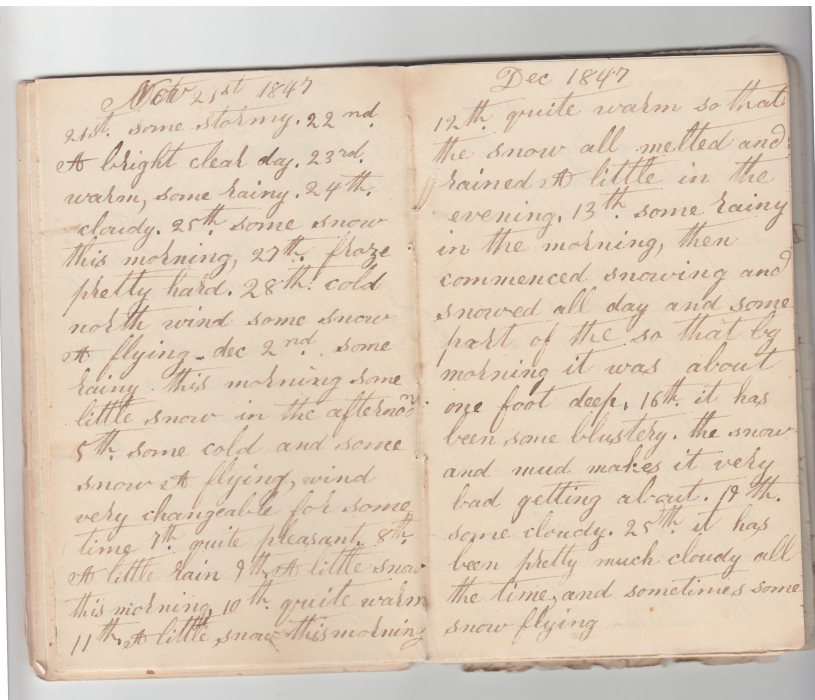 Nov 21st 1847
21st. some stormy. 22nd.
A bright clear day. 23rd.
warm, some rainy. 24th.
cloudy. 25th some snow
this morning, 27th. fraze
pretty hard. 28th. cold
north wind some snow
A flying. dec 2nd. some
rainy this morning some
little snow in the afternoon
5th. some cold and some
snow A flying, wind
very changeable for some
time 7th. quite pleasant. 8th.
A little rain 9th. A little snow
this morning, 10th. quite warm
11th. A little snow this morning
Dec 1847
12th. quite warm so that
the snow all melted and
rained A little in the
evening. 13th. some rainy
in the morning, then
commenced snowing and
snowed all day and some
part of the so that by
morning it was about
one foot deep. 16th. it has
been some blustery. the snow
and mud makes it very
bad getting about. th.
some cloudy. 25th. it has
been pretty much cloudy all
the time, and sometimes some
snow flying